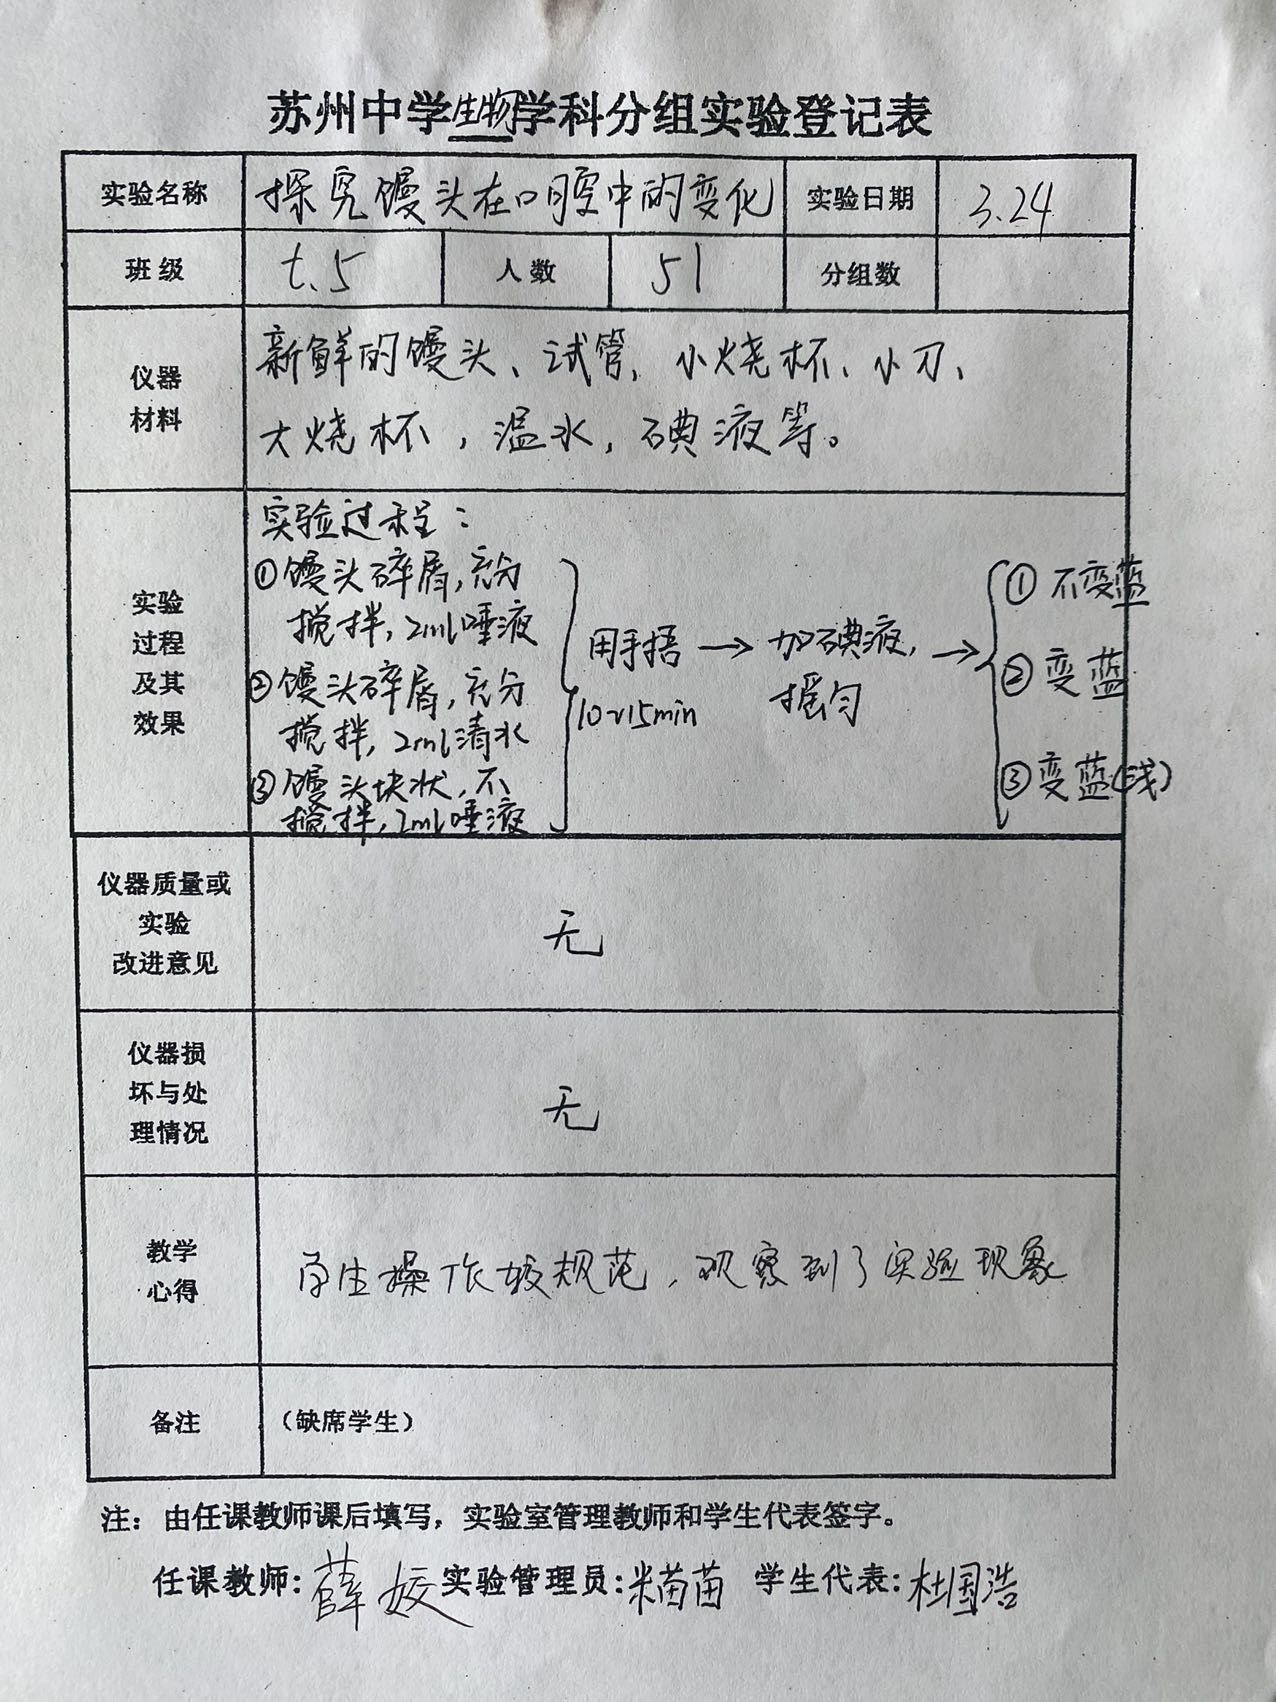 苏州中学生物学科分组实验登记表
实验名称 探究馒头在口腔中的变化 实验日期 3.24
班级 七.5 人数 51 分组数
仪器
材料
新鲜的馒头、试管、小烧杯、小刀、
大烧杯，温水，碘液等。
实验
过程
及其
效果
实验过程：
①馒头碎屑,充分
搅拌,2ml唾液
②馒头碎屑,充分
搅拌,2ml清水
③馒头块状,不
搅拌,2ml唾液
用手捂
10~15min
→
加碘液,
摇匀
→
①不变蓝
②变蓝
③变蓝(浅)
仪器质量或
实验
改进意见
无
仪器损
坏与处
理情况
无
教学
心得
学生操作较规范，观察到了实验现象
备注 （缺席学生）
注：由任课教师课后填写，实验室管理教师和学生代表签字。
任课教师:薛姣 实验管理员:米苗苗 学生代表:杜国浩